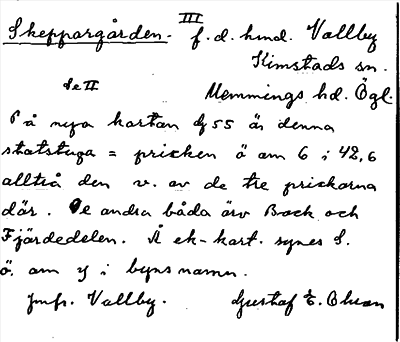 III
Skeppargården. f.d. hmd. Vallby
Kimstads sn.
Se II Memmings hd. Ögl.
På nya kartan dj 55 är denna
statstuga = pricken ö om 6 i 42,6
alltså den v. av de tre prickarna
där. De andra båda äro Back och
Fjärdedelen. Å ek-kart. synes S.
ö. om y i byns namn.
Jmfr. Vallby. Gustaf E. Olsson